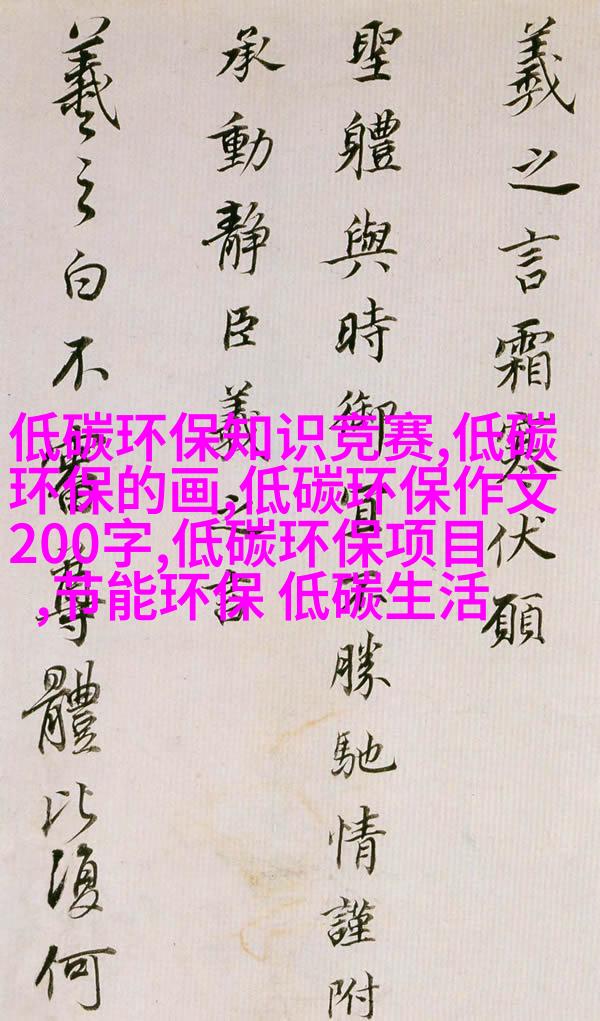 羲之言霜寒伏願
聖體與時御宜不勝馳情謹附
承動靜臣羲之言
羲之白不審尊體比復何
低碳环保知识竞赛,低碳
环保的画,低碳环保作文
200字,低碳环保项目
,节能环保 低碳生活